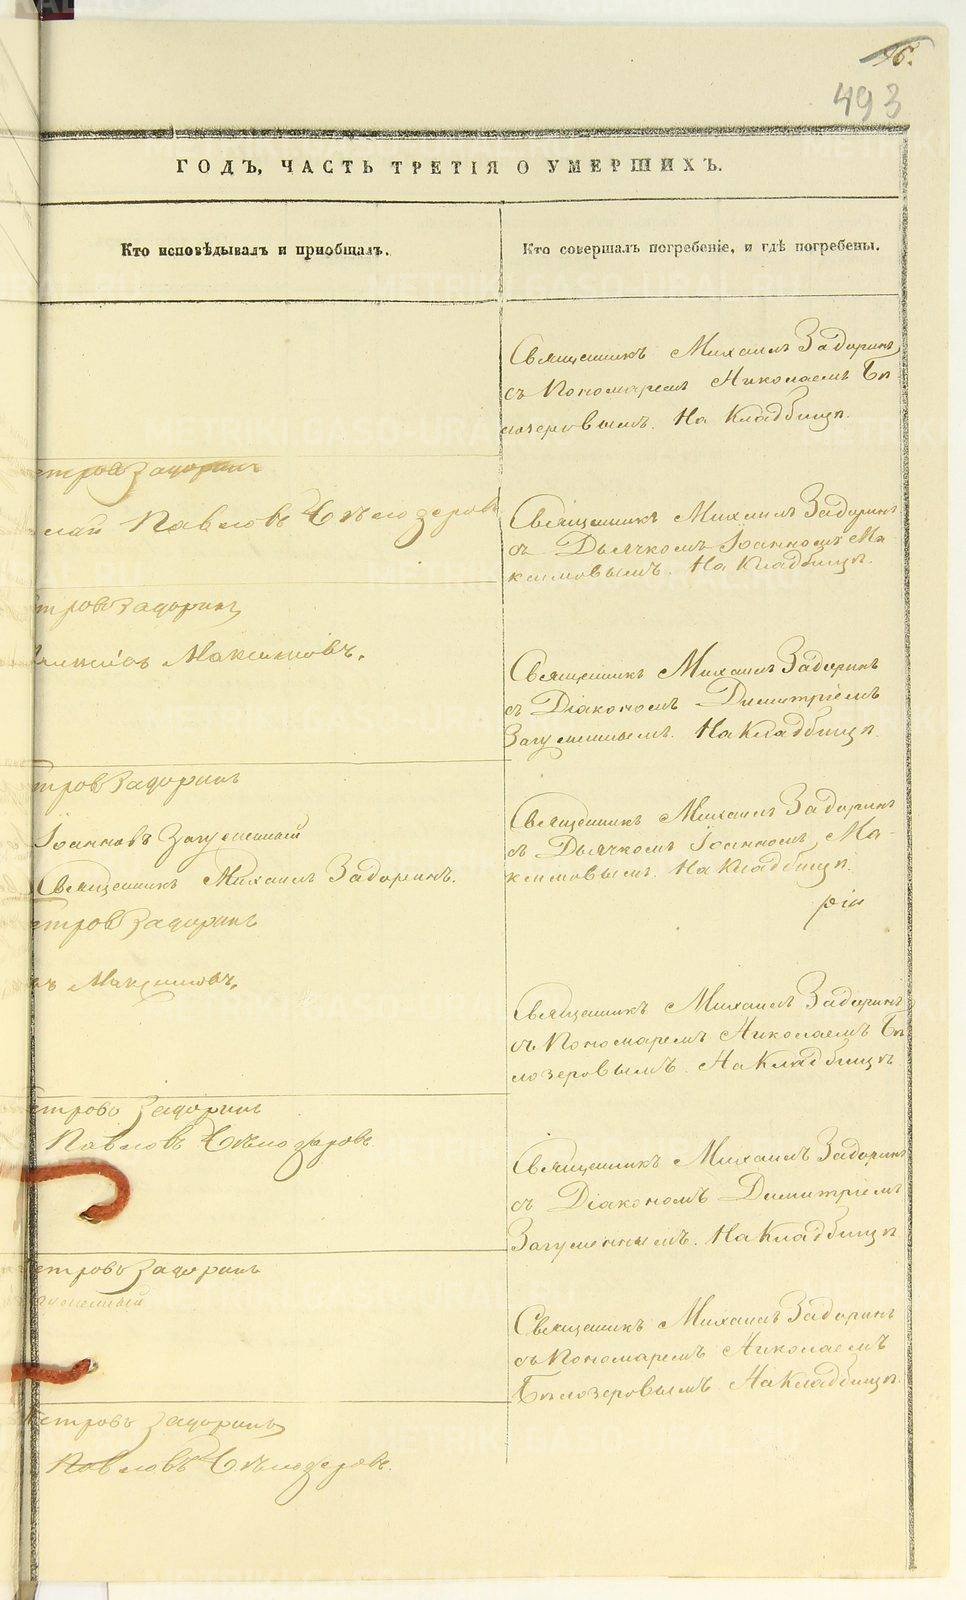 96.
493
ГОДЪ, ЧАСТЬ ТРЕТІЯ О УМЕРШИХЪ.
Кто исповѣдывалъ и приобщалъ.
Кто совершалъ погребеніе, и гдѣ погребены.
Священникъ Михаилъ Задоринъ
съ Пономаремъ Николаемъ Бѣ-
лозеровымъ. На Кладбищѣ.
етровъ Задоринъ
лай Павловъ Бѣлозеровъ
Священникъ Михаилъ Задоринъ
съ Дьячкомъ Іоанномъ Ма
ксимовымъ. На Кладбищѣ.
тровъ Задоринъ
Максимовъ.
Священникъ Михаилъ Задоринъ
съ Діакономъ Димитріемъ
Загуменнымъ. На Кладбищѣ
тровъ Задоринъ
Іоанновъ Загуменный
Священникъ Михаилъ Задоринъ.
Священникъ Михаилъ Задоринъ
съ Дьячкомъ Іоанномъ Ма-
ксимовымъ. На Кладбищѣ.
рiи
етровъ Задоринъ
въ Максимовъ.
Священникъ Михаилъ Задоринъ
съ Пономаремъ Николаемъ Бѣ
лозеровымъ. На Кладбищѣ
етровъ Задоринъ
Павловъ Бѣлозеровъ.
Священникъ Михаилъ Задоринъ
съ Діакономъ Димитріемъ
Загуменнымъ. На Кладбищѣ
етровъ Задоринъ
гуменный
Священникъ Михаилъ Задоринъ
съ Пономаремъ Николаемъ
Бѣлозеровымъ На Кладбищѣ.
етровъ Задоринъ
Павловъ Бѣлозеровъ.
METRIKI.GASO-URAL.RU